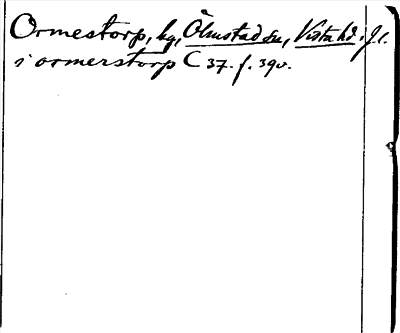 Ormestorp, by, Ölmstad sn, Vista hd. J.l.
i ormerstorp C 37. f. 390.